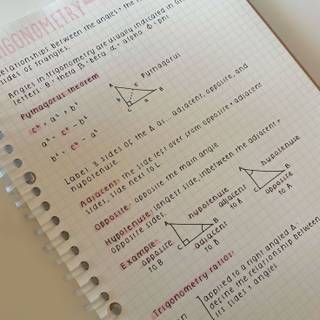 TRIGONOMETRY
relationships between the angles + the
sides of triangles.
Angles in trigonometry are usually indicated in
letters: θ: theta β: beta α: alpha Φ: phi
Pythagorus theorem
Pythagorus
c² = a² + b²
a² = c² - b²
b² = c² - a²
A
b
c
C
a
B
Label 3 sides of the Δ as... adjacent, opposite, and
hypotenuse.
Adjacent: the side left over from opposite + adjacent
sides, side next to L
Opposite: opposite the main angle
Hypotenuse: longest side, inbetween the adjacent +
opposite sides.
Example:
opposite
to B
A
hypotenuse
C
B
adjacent
to B
adjacent
to A
A
hypotenuse
C
B
opposite
to A
Trigonometry ratios
applied to a right angled Δ.
define the relationship between
its sides + angles